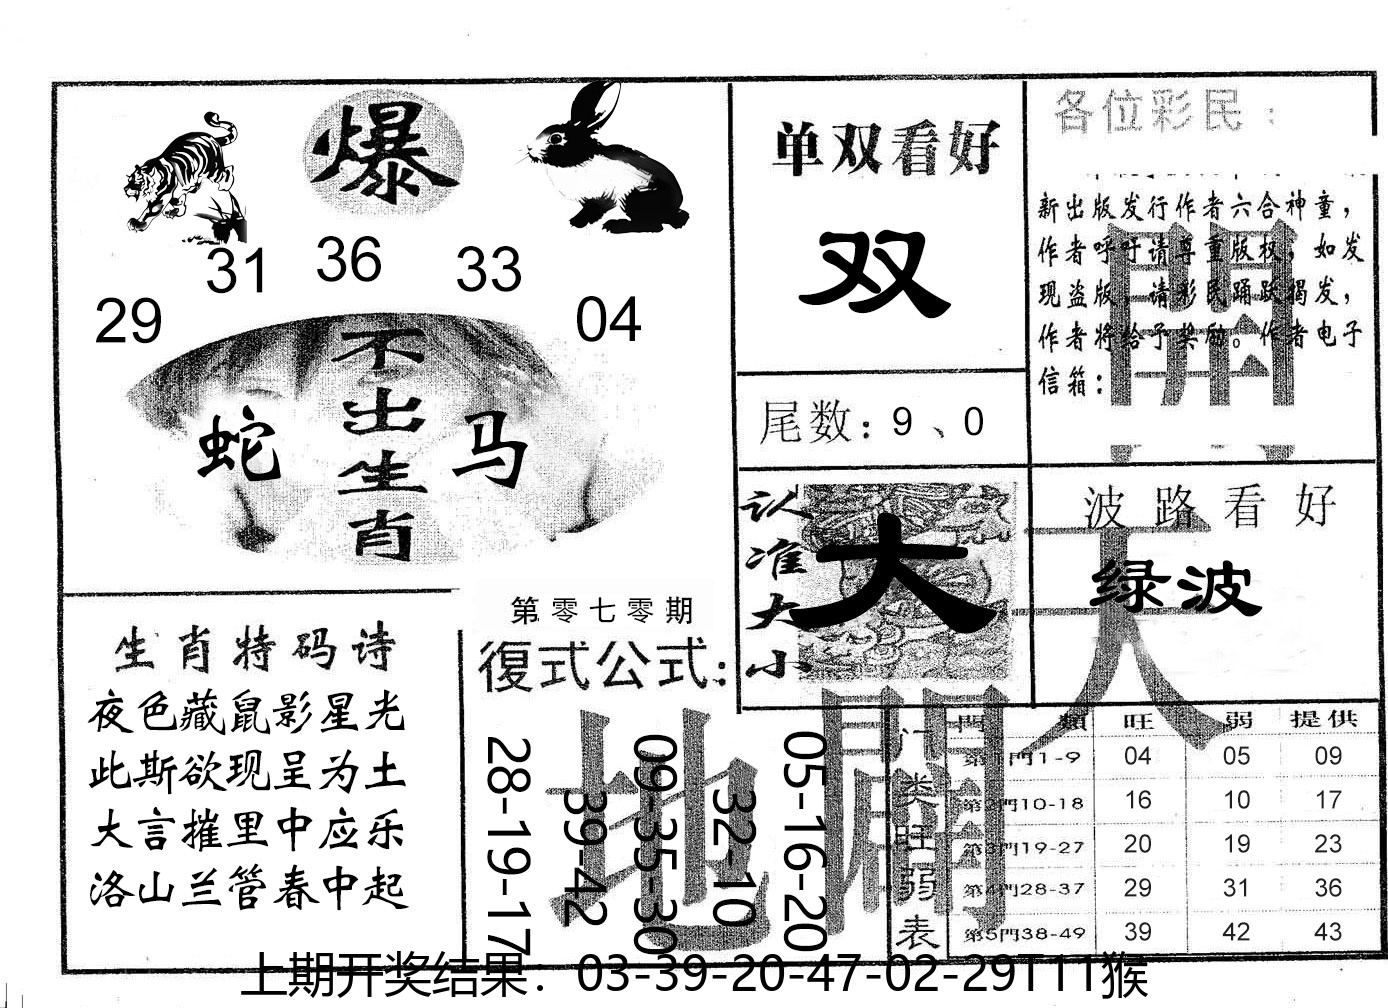 爆
31 36 33
29 04
不出生肖
蛇 马
单双看好
双
尾数：9、0
各位彩民：
新出版发行作者六合神童，
作者呼吁请尊重版权，如发
现盗版，请彩民踊跃揭发，
作者将给予奖励。作者电子
信箱：
開
认准大小
大
波路看好
绿波
天
生肖特码诗
夜色藏鼠影星光
此斯欲现呈为土
大言摧里中应乐
洛山兰管春中起
第零七零期
復式公式：
28-19-17
39-42
09-35-30
32-10
05-16-20
地
闢
门类旺弱表
門類 旺 弱 提供
第1門1-9 04 05 09
第2門10-18 16 10 17
第3門19-27 20 19 23
第4門28-37 29 31 36
第5門38-49 39 42 43
上期开奖结果：03-39-20-47-02-29T11猴